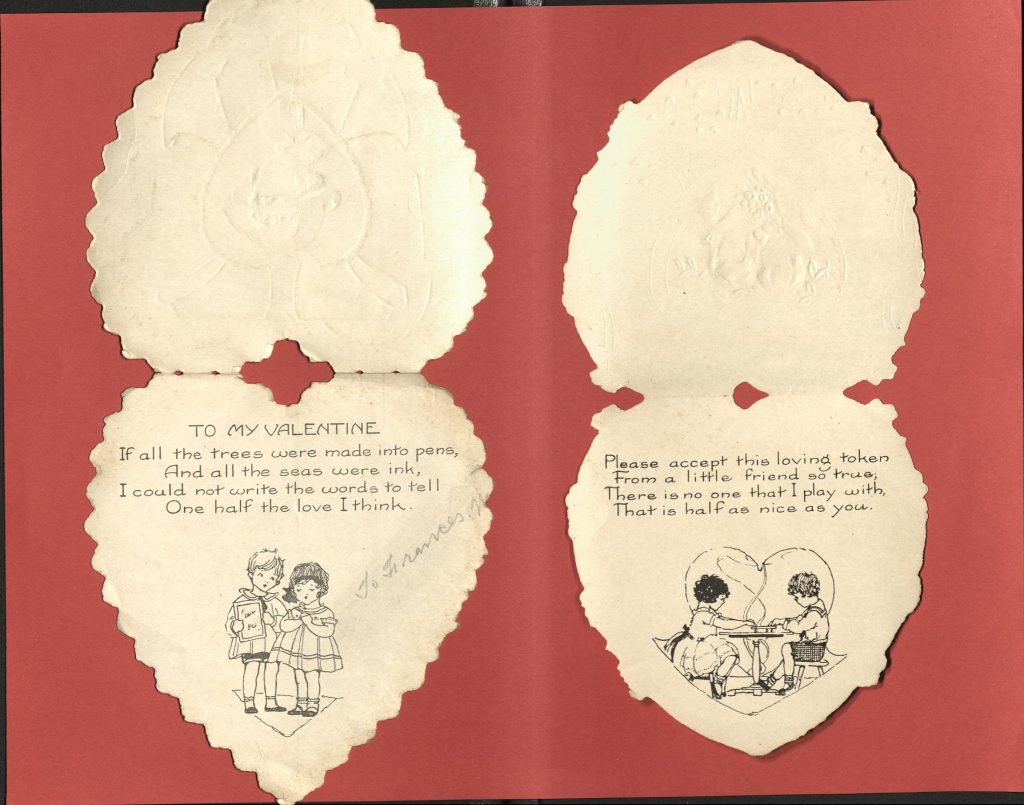 TO MY VALENTINE
If all the trees were made into pens,
And all the seas were ink,
I could not write the words to tell
One half the love I think.
To Frances.
Please accept this loving token
From a little friend so true;
There is no one that I play with,
That is half as nice as you.